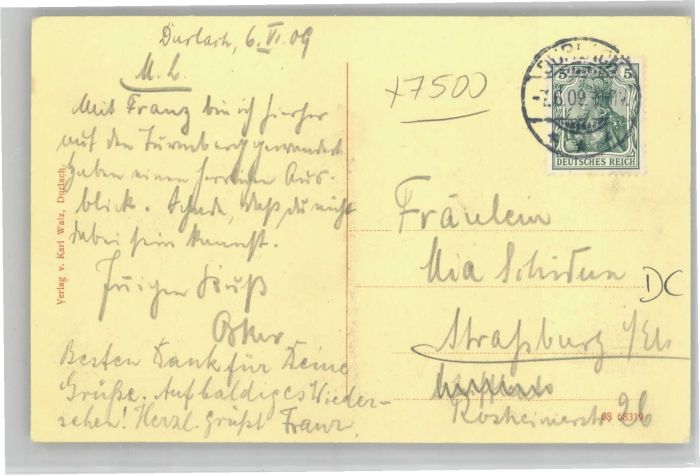 Durlach, 6. VI. 09
M. L.
Mit Franz bin ich hierher
auf den Turmberg gewandert
haben einen herrlichen Aus-
blick. Schade, daß du nicht
dabei sein kannst.
Innigen Kuß
Oskar
Besten Dank für Deine
Grüße. Auf baldiges Wieder-
sehen! Herzl. grüßt Franz.
Verlag v. Karl Walz, Durlach.
+7500
DURLACH
7.6.09.
5 5
DEUTSCHES REICH
Fräulein
Mia
DC
Straßburg i/Els
Rosheimerstr 26
08 68319